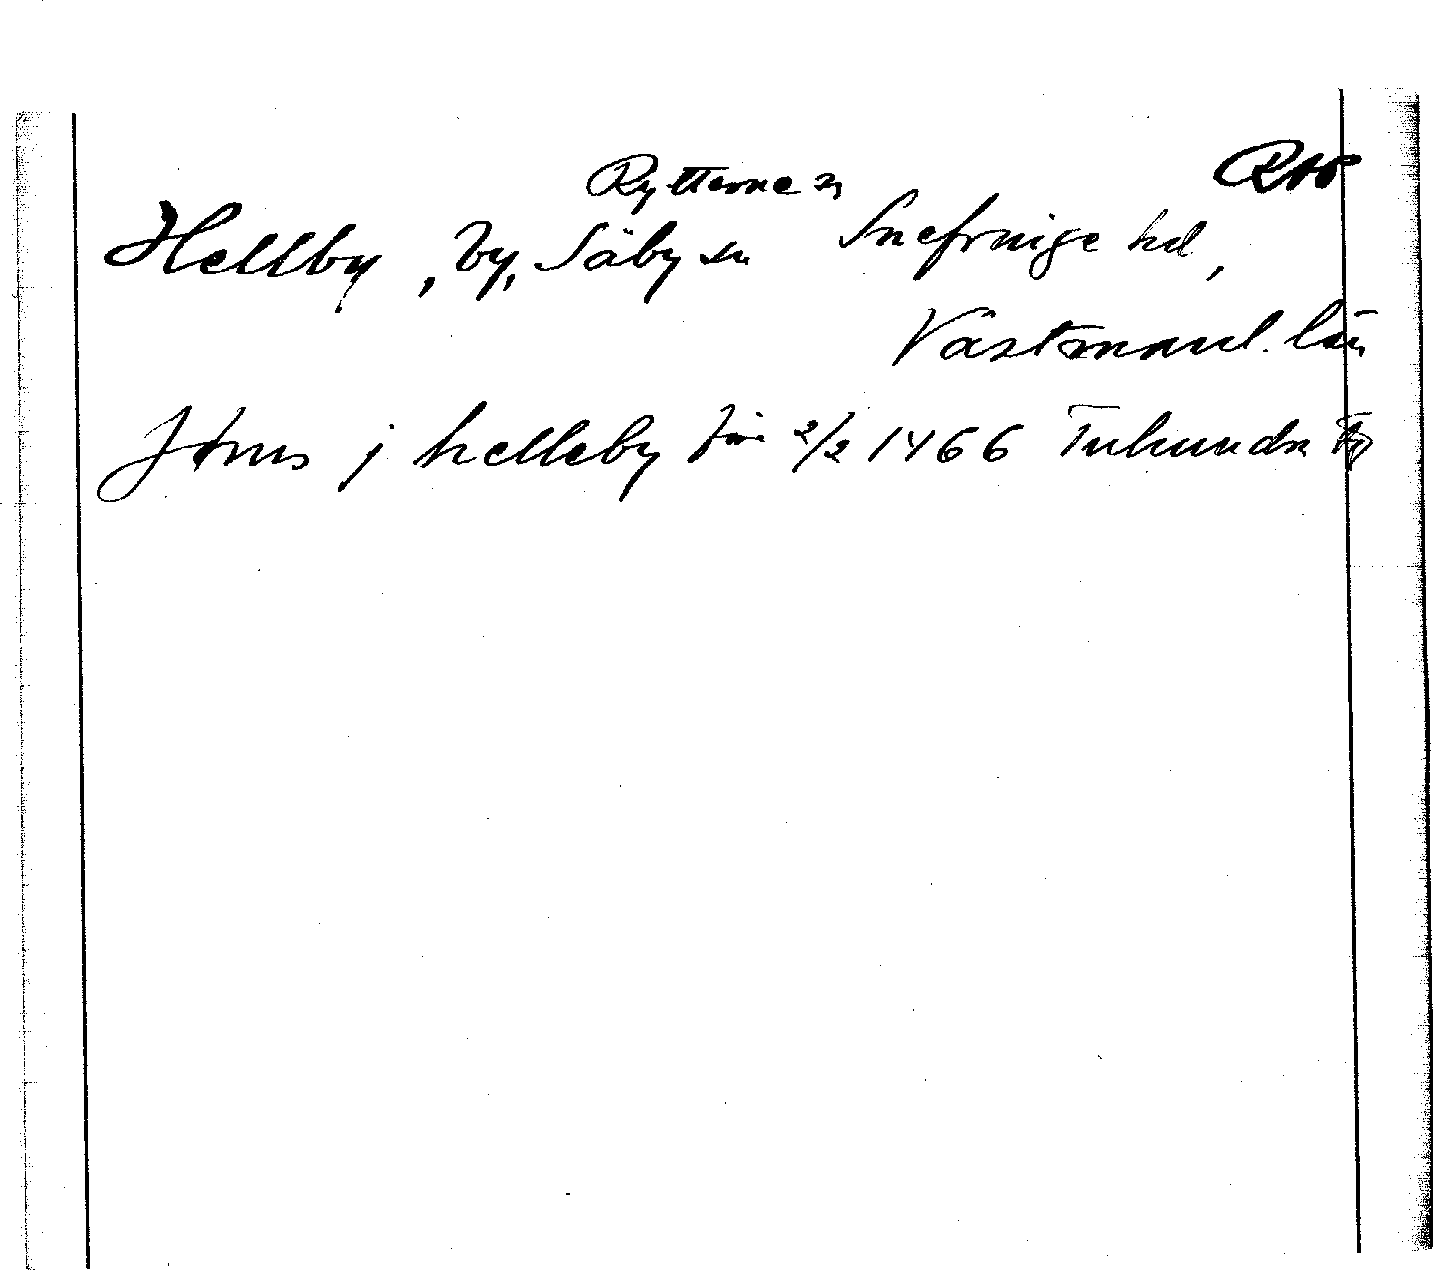 Rytterne sn
Hellby, by, Säby sn Snefringe hd,
Västmanl. län
Jöns j helleby 2/2 1466 Tuhunda